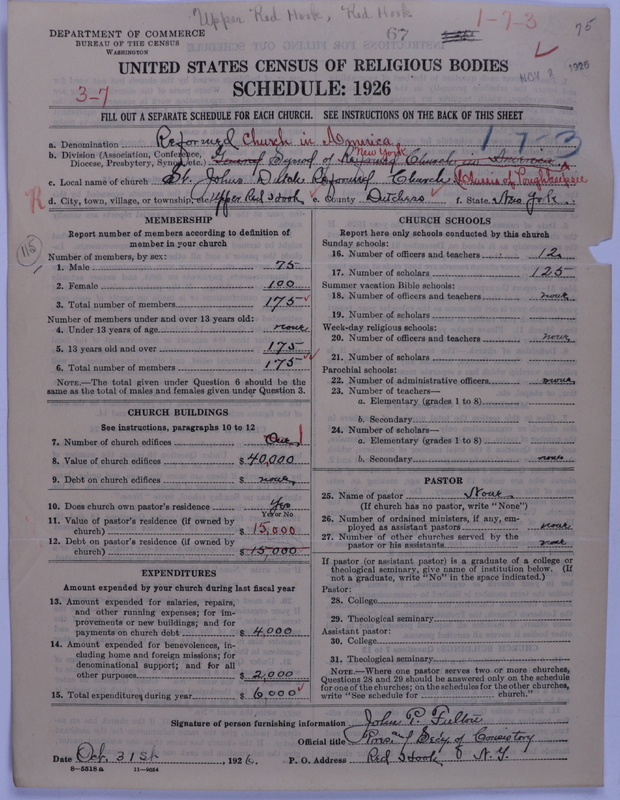 Upper Red Hook, Red Hook
67
1-7-3
75
DEPARTMENT OF COMMERCE
BUREAU OF THE CENSUS
WASHINGTON
NOV 2 1926
UNITED STATES CENSUS OF RELIGIOUS BODIES
3-7
SCHEDULE: 1926
FILL OUT A SEPARATE SCHEDULE FOR EACH CHURCH. SEE INSTRUCTIONS ON THE BACK OF THIS SHEET
1-7-3
a. Denomination Reformed Church in America
b. Division (Association, Conference, Diocese, Presbytery, Synod, etc.) General Synod of New York Reformed Church in America
c. Local name of church St. Johns Dutch Reformed Church Classis of Poughkeepsie
R d. City, town, village, or township, etc. Upper Red Hook e. County Dutchess f. State New York
115
MEMBERSHIP
Report number of members according to definition of
member in your church
Number of members, by sex:
1. Male 75
2. Female 100
3. Total number of members 175
Number of members under and over 13 years old:
4. Under 13 years of age none
5. 13 years old and over 175
6. Total number of members 175
NOTE.—The total given under Question 6 should be the
same as the total of males and females given under Question 3.
CHURCH BUILDINGS
See instructions, paragraphs 10 to 12
7. Number of church edifices One 1
8. Value of church edifices $ 40,000
9. Debt on church edifices $ none
10. Does church own pastor's residence Yes
Yes or No
11. Value of pastor's residence (if owned by
church) $ 15,000
12. Debt on pastor's residence (if owned by
church) $ 15,000
EXPENDITURES
Amount expended by your church during last fiscal year
13. Amount expended for salaries, repairs,
and other running expenses; for im-
provements or new buildings; and for
payments on church debt $ 4,000
14. Amount expended for benevolences, in-
cluding home and foreign missions; for
denominational support; and for all
other purposes $ 2,000
15. Total expenditures during year $ 6,000
CHURCH SCHOOLS
Report here only schools conducted by this church
Sunday schools:
16. Number of officers and teachers 12
17. Number of scholars 125
Summer vacation Bible schools:
18. Number of officers and teachers none
19. Number of scholars
Week-day religious schools:
20. Number of officers and teachers none
21. Number of scholars
Parochial schools:
22. Number of administrative officers none
23. Number of teachers—
a. Elementary (grades 1 to 8)
b. Secondary
24. Number of scholars—
a. Elementary (grades 1 to 8)
b. Secondary none
PASTOR
25. Name of pastor None
(If church has no pastor, write "None")
26. Number of ordained ministers, if any, em-
ployed as assistant pastors none
27. Number of other churches served by the
pastor or his assistants none
If pastor (or assistant pastor) is a graduate of a college or
theological seminary, give name of institution below. (If
not a graduate, write "No" in the space indicated.)
Pastor:
28. College
29. Theological seminary
Assistant pastor:
30. College
31. Theological seminary
NOTE.—Where one pastor serves two or more churches,
Questions 28 and 29 should be answered only on the schedule
for one of the churches; on the schedules for the other churches,
write "See schedule for church."
Signature of person furnishing information John P. Fulton
Official title Secy. of Consistory
Date Oct. 31st, 1926. P. O. Address Red Hook N. Y.
8-5518a 11-9064